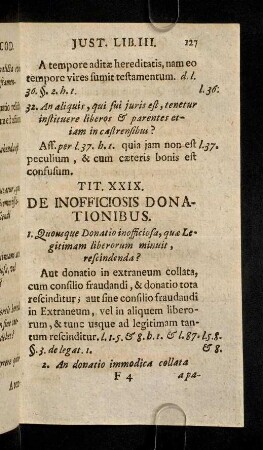 JUST. LIB. III. 127
A tempore aditæ hereditatis, nam eo
tempore vires sumit testamentum. d. l.
36. §. 2. h. t. l. 36.
32. An aliquis, qui sui juris est, tenetur
instituere liberos & parentes et-
iam in castrensibus?
Aff. per l. 37. h. t. quia jam non est l. 37.
peculium, & cum cæteris bonis est
confusum.
TIT. XXIX.
DE INOFFICIOSIS DONA-
TIONIBUS.
1. Quousque Donatio inofficiosa, quæ Le-
gitimam liberorum minuit,
rescindenda?
Aut donatio in extraneum collata,
cum consilio fraudandi, & donatio tota
rescinditur; aut sine consilio fraudandi
in Extraneum, vel in aliquem libero-
rum, & tunc usque ad legitimam tan-
tum rescinditur. l. 1. 5. & 8. h. t. & l. 87. l. 5. 8.
§. 3. de legat. 1. & 8.
2. An donatio immodica collata
F 4 a pa-